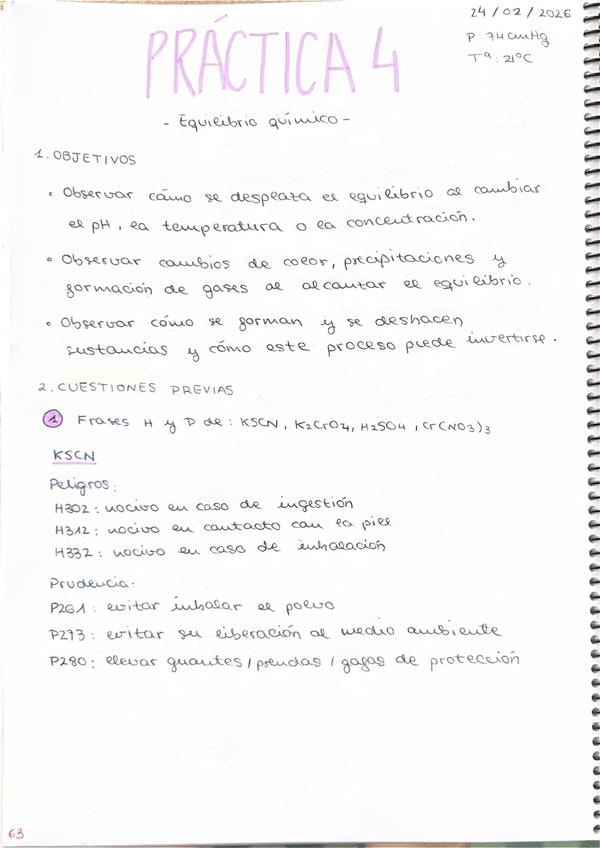 24/02/2026
P: 74cmHg
Tª: 21ºC
PRÁCTICA 4
- Equilibrio químico -
1. OBJETIVOS
• Observar cómo se desplaza el equilibrio al cambiar
el pH, la temperatura o la concentración.
• Observar cambios de color, precipitaciones y
formación de gases al alcanzar el equilibrio.
• Observar cómo se forman y se deshacen
sustancias y cómo este proceso puede invertirse.
2. CUESTIONES PREVIAS
1 Frases H y P de: KSCN, K2CrO4, H2SO4, Cr(NO3)3
KSCN
Peligros:
H302: nocivo en caso de ingestión
H312: nocivo en contacto con la piel
H332: nocivo en caso de inhalación
Prudencia:
P261: evitar inhalar el polvo
P273: evitar su liberación al medio ambiente
P280: llevar guantes/prendas/gafas de protección
63